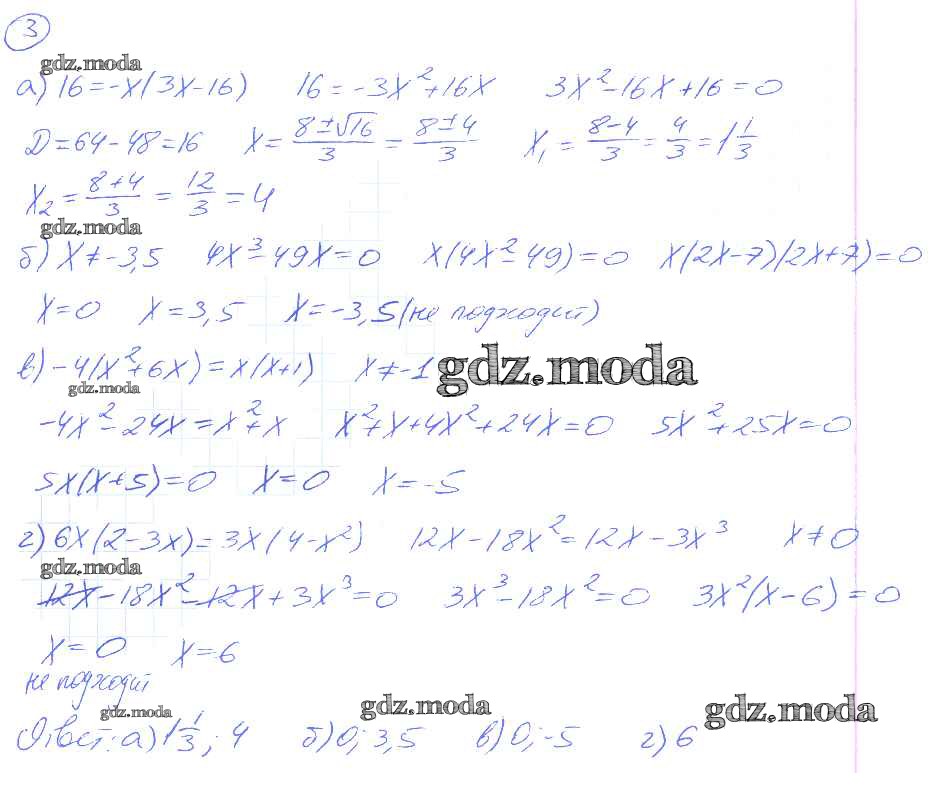 3
gdz.moda
а) 16=-x(3x-16) 16=-3x²+16x 3x²-16x+16=0
D=64-48=16 x=(8±√16)/3=(8±4)/3 x₁=(8-4)/3=4/3=1 1/3
x₂=(8+4)/3=12/3=4
gdz.moda
б) x≠-3,5 4x³-49x=0 x(4x²-49)=0 x(2x-7)(2x+7)=0
x=0 x=3,5 x=-3,5(не подходит)
в) -4(x²+6x)=x(x+1) x≠-1 gdz.moda
gdz.moda
-4x²-24x=x²+x x²+x+4x²+24x=0 5x²+25x=0
5x(x+5)=0 x=0 x=-5
г) 6x(2-3x)=3x(4-x²) 12x-18x²=12x-3x³ x≠0
gdz.moda
12x-18x²-12x+3x³=0 3x³-18x²=0 3x²(x-6)=0
x=0 x=6
не подходит
gdz.moda gdz.moda gdz.moda
Ответ: а) 1 1/3; 4 б) 0; 3,5 в) 0; -5 г) 6